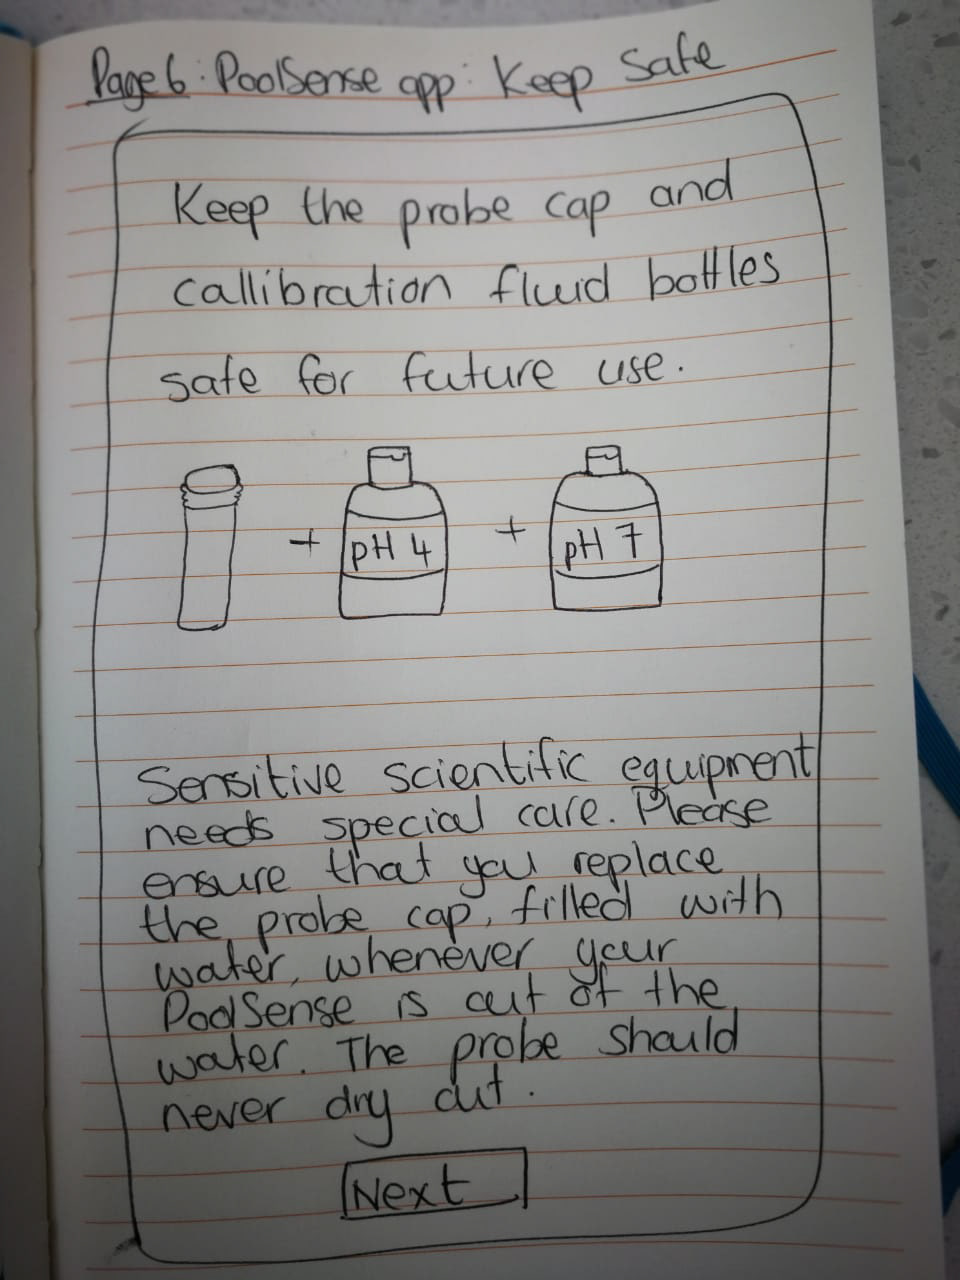 Page 6: PoolSense app: Keep Safe
Keep the probe cap and
callibration fluid bottles
safe for future use.
+ pH 4 + pH 7
Sensitive scientific equipment
needs special care. Please
ensure that you replace
the probe cap, filled with
water, whenever your
PoolSense is out of the
water. The probe should
never dry out.
Next